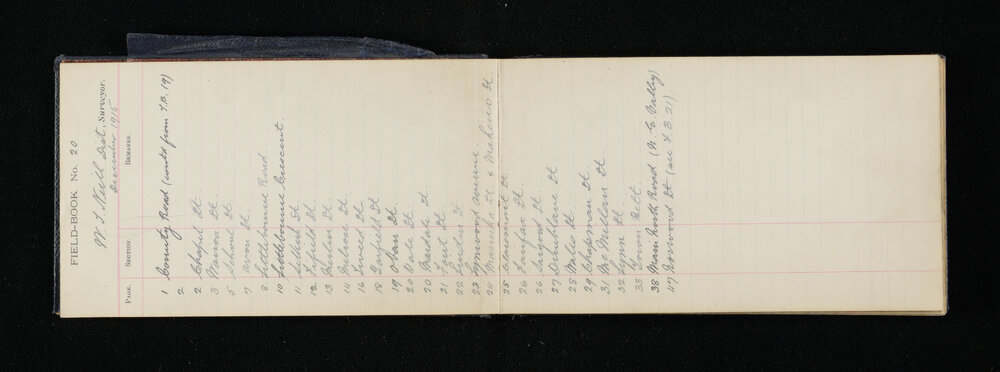 FIELD-BOOK No. 20
W. T. Neill Dist. Surveyor.
December 1915
PAGE. SECTION. REMARKS.
1 County Road (contd from F.B. 19)
2
2 Chapel St.
3 St.
5 School St.
7 Avon St.
8 Settlebourne Road.
10 Settlebourne Crescent.
11 St.
12 Fifield St.
13 St.
14 St.
16 Tweed St.
18 Fairfield St.
19 Oban St.
20 Dale St.
20 St.
21 St.
22 St.
23 Lynwood Avenue.
24 St & Maheno St.
25 St
26 Fairfax St.
26 Sargood St.
27 Dunblane St.
28 Male St.
29 Chapman St.
31 McMillan St.
32 Lynn St.
33 Town Belt.
38 Main North Road (N. E. Valley)
47 Norwood St (on F B 21)